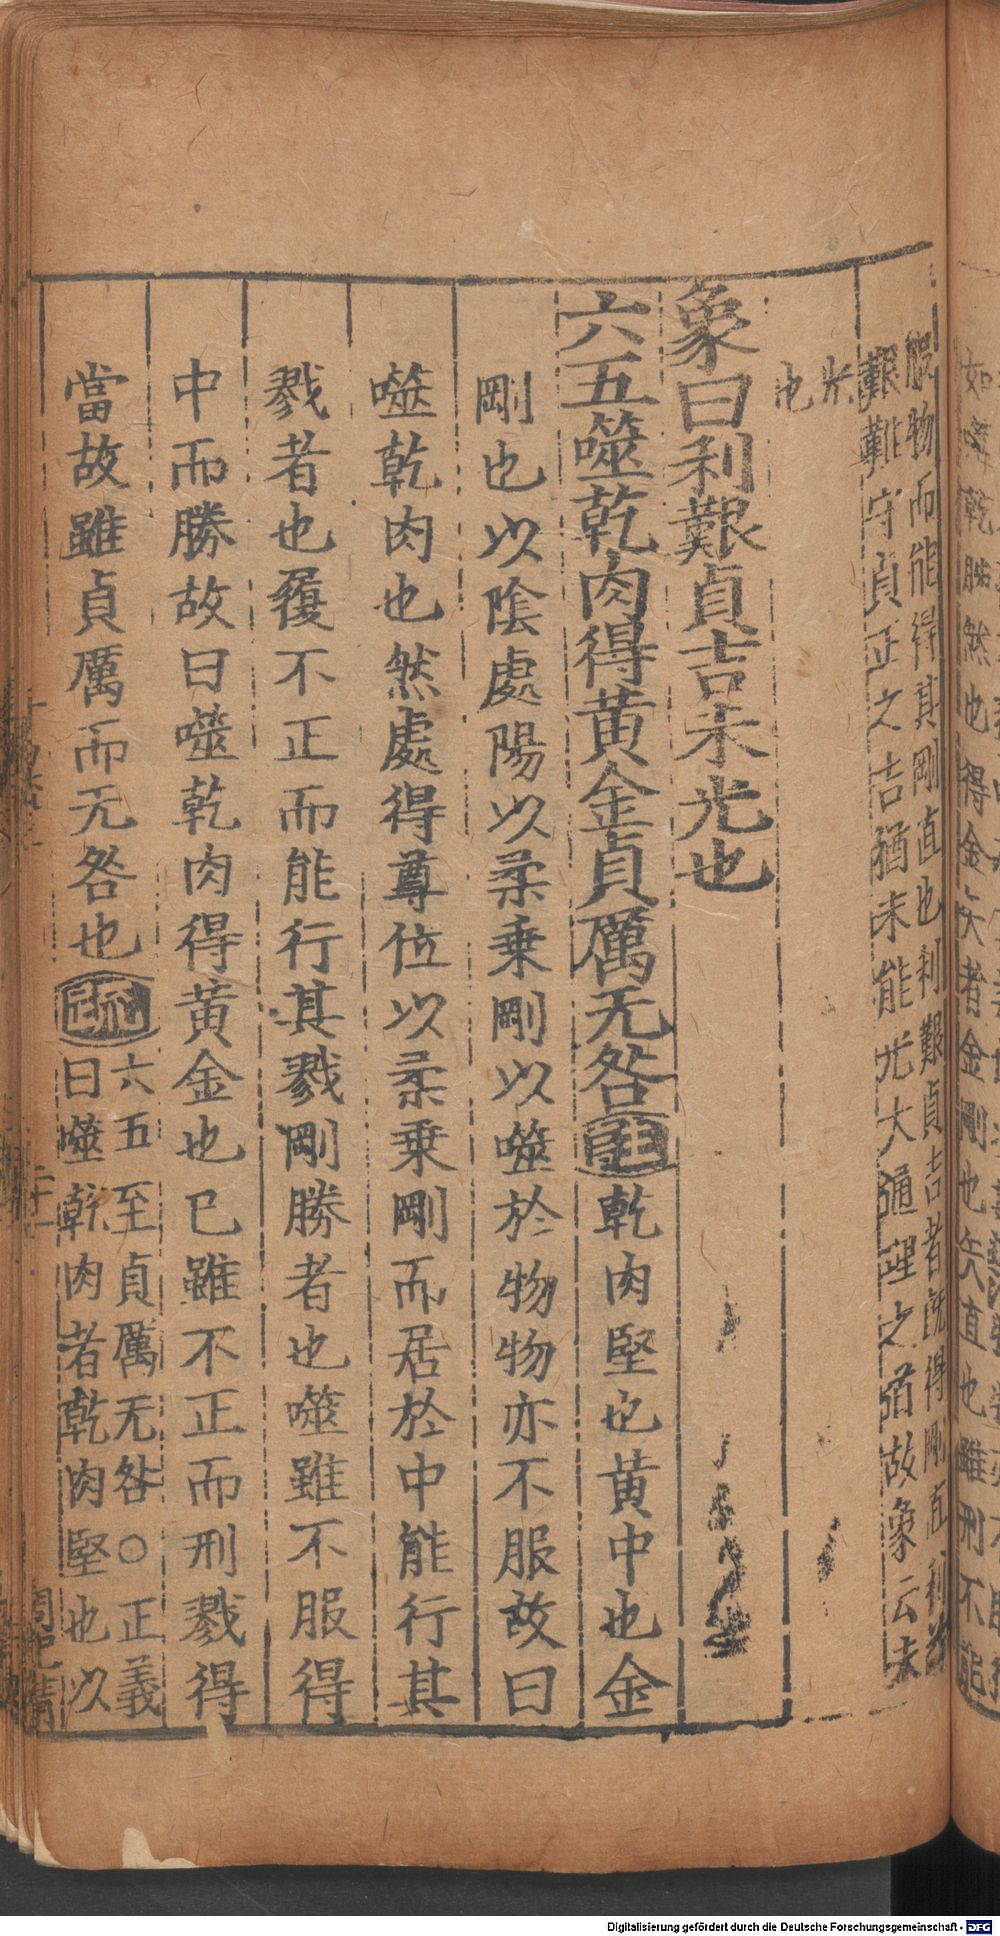 脫物而能得其剛直也利艱貞吉者既得剛直利益
艱難守貞正之吉猶未能光大通理之道故象云未
光
也
象曰利艱貞吉未光也
六五噬乾肉得黃金貞厲无咎註乾肉堅也黃中也金
剛也以陰處陽以柔乘剛以噬於物物亦不服故曰
噬乾肉也然處得尊位以柔乘剛而居於中能行其
戮者也履不正而能行其戮剛勝者也噬雖不服得
中而勝故曰噬乾肉得黃金也已雖不正而刑戮得
當故雖貞厲而无咎也疏六五至貞厲无咎○正義
曰噬乾肉者乾肉堅也以
如噬乾胏然也得金矢者金剛也矢直也雖刑不能
Digitalisierung gefördert durch die Deutsche Forschungsgemeinschaft - DFG